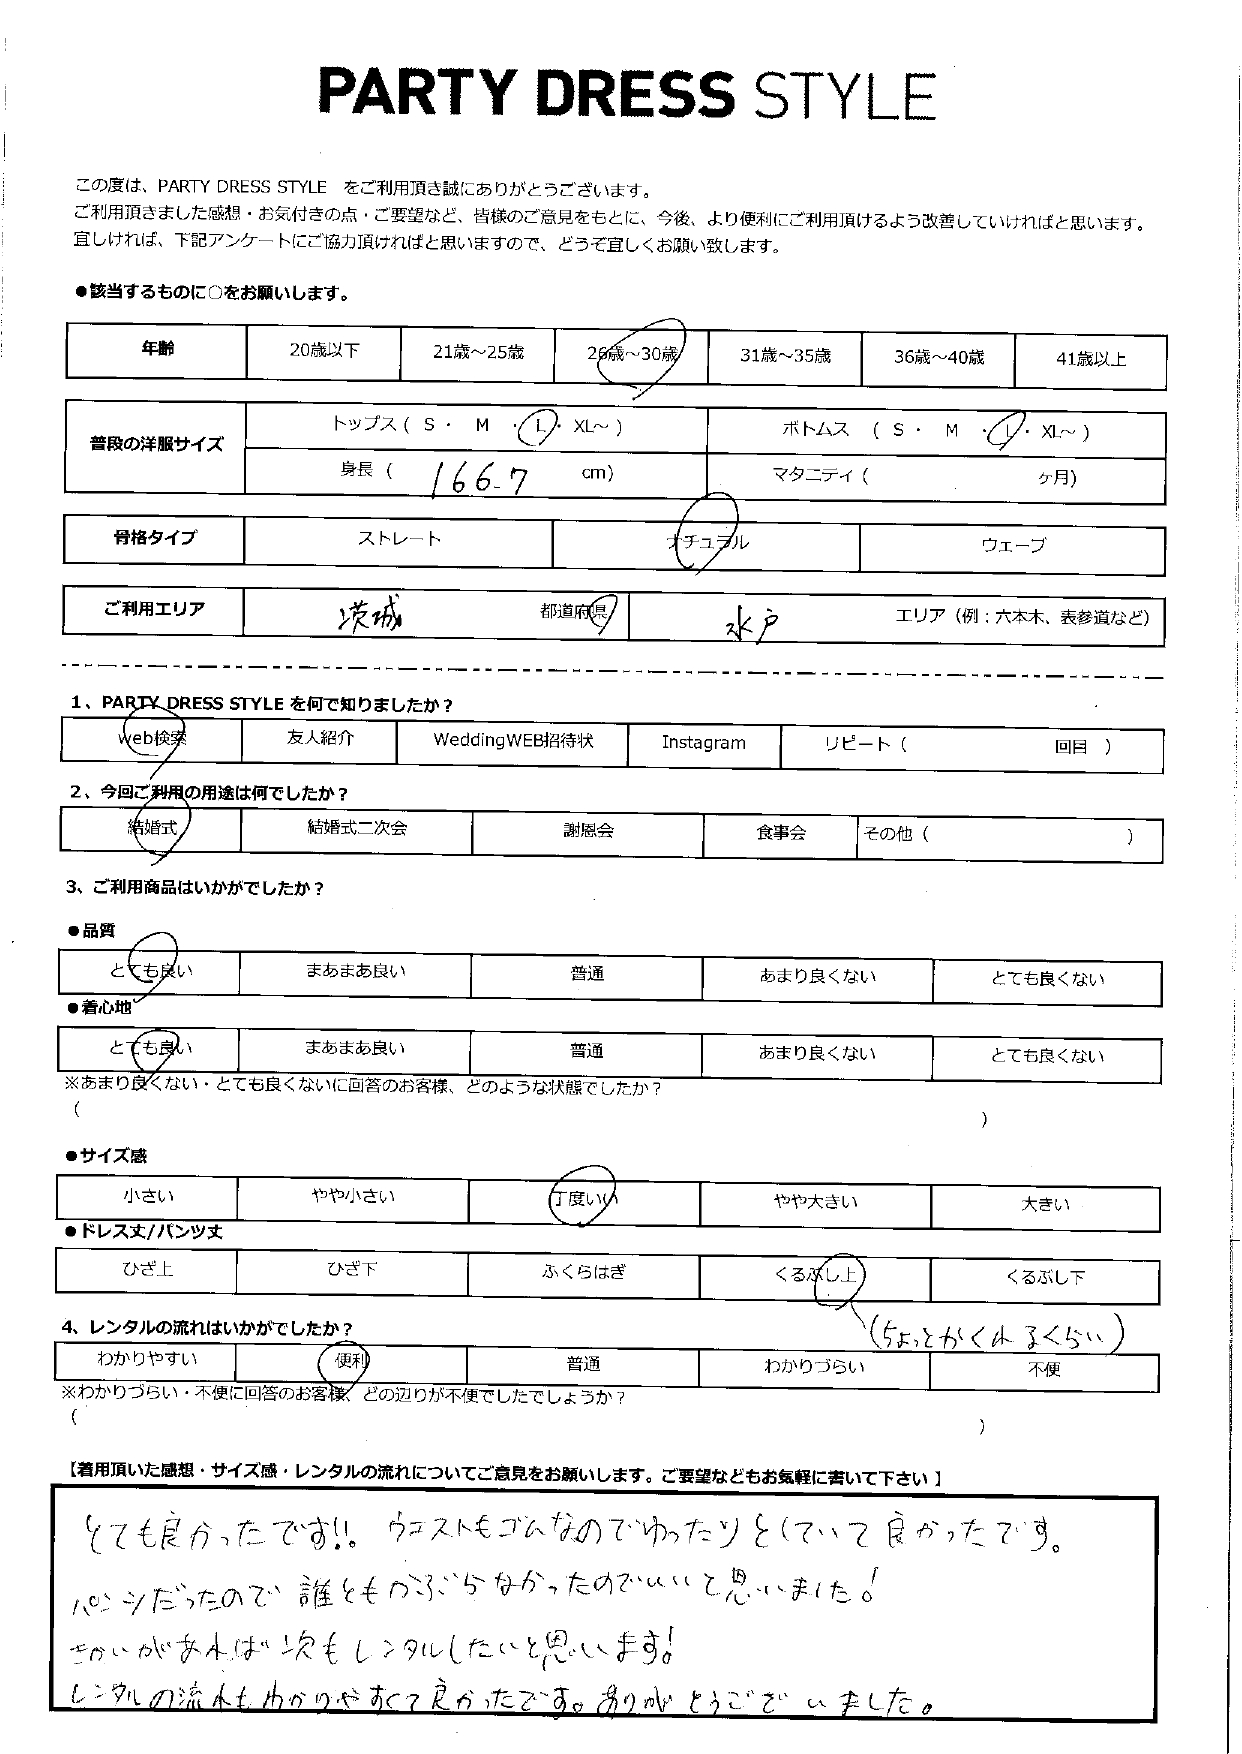 PARTY DRESS STYLE
この度は、PARTY DRESS STYLE をご利用頂き誠にありがとうございます。
ご利用頂きました感想・お気付きの点・ご要望など、皆様のご意見をもとに、今後、より便利にご利用頂けるよう改善していければと思います。
宜しければ、下記アンケートにご協力頂ければと思いますので、どうぞ宜しくお願い致します。
●該当するものに○をお願いします。
年齢 20歳以下 21歳～25歳 26歳～30歳 31歳～35歳 36歳～40歳 41歳以上
普段の洋服サイズ トップス ( S ・ M ・ L ・ XL～ ) ボトムス ( S ・ M ・ L ・ XL～ )
身長 ( 166.7 cm) マタニティ ( ヶ月)
骨格タイプ ストレート ナチュラル ウェーブ
ご利用エリア 茨城 都道府県 水戸 エリア（例：六本木、表参道など）
1、PARTY DRESS STYLE を何で知りましたか？
Web検索 友人紹介 WeddingWEB招待状 Instagram リピート ( 回目 )
2、今回ご利用の用途は何でしたか？
結婚式 結婚式二次会 謝恩会 食事会 その他 ( )
3、ご利用商品はいかがでしたか？
●品質
とても良い まあまあ良い 普通 あまり良くない とても良くない
●着心地
とても良い まあまあ良い 普通 あまり良くない とても良くない
※あまり良くない・とても良くないに回答のお客様、どのような状態でしたか？
( )
●サイズ感
小さい やや小さい 丁度いい やや大きい 大きい
●ドレス丈/パンツ丈
ひざ上 ひざ下 ふくらはぎ くるぶし上 くるぶし下
(ちょっとかくれるくらい)
4、レンタルの流れはいかがでしたか？
わかりやすい 便利 普通 わかりづらい 不便
※わかりづらい・不便に回答のお客様、どの辺りが不便でしたでしょうか？
( )
【着用頂いた感想・サイズ感・レンタルの流れについてご意見をお願いします。ご要望などもお気軽に書いて下さい 】
とても良かったです!!。ウエストもゴムなのでゆったりとしていて良かったです。
パンツだったので誰ともかぶらなかったのでいいと思いました!
きかいがあれば次もレンタルしたいと思います!
レンタルの流れもわかりやすくて良かったです。ありがとうございました。